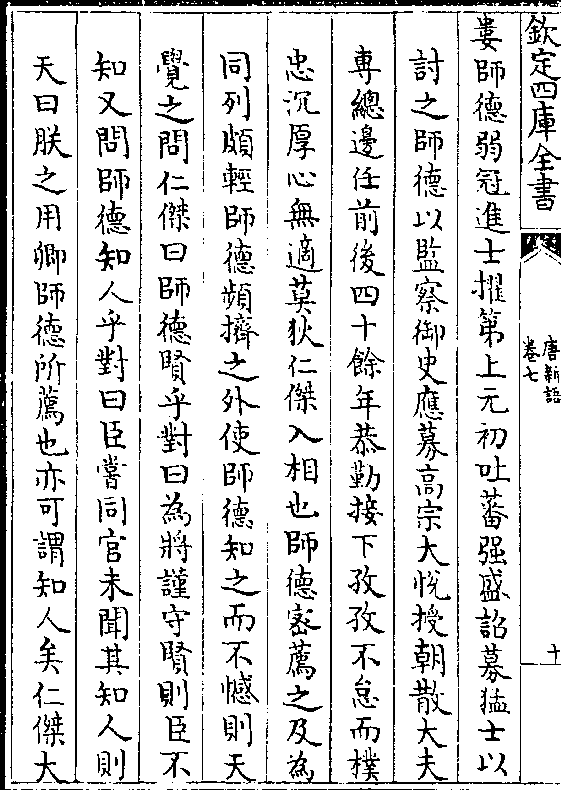 欽定四庫全書
唐新語
卷七
十
婁師德弱冠進士擢第上元初吐蕃强盛詔募猛士以
討之師德以監察御史應募高宗大悅授朝散大夫
專總邊任前後四十餘年恭勤接下孜孜不怠而樸
忠沉厚心無適莫狄仁傑入相也師德密薦之及為
同列頗輕師德頻擠之外使師德知之而不憾則天
覺之問仁傑曰師德賢乎對曰為將謹守賢則臣不
知又問師德知人乎對曰臣嘗同官未聞其知人則
天曰朕之用卿師德所薦也亦可謂知人矣仁傑大